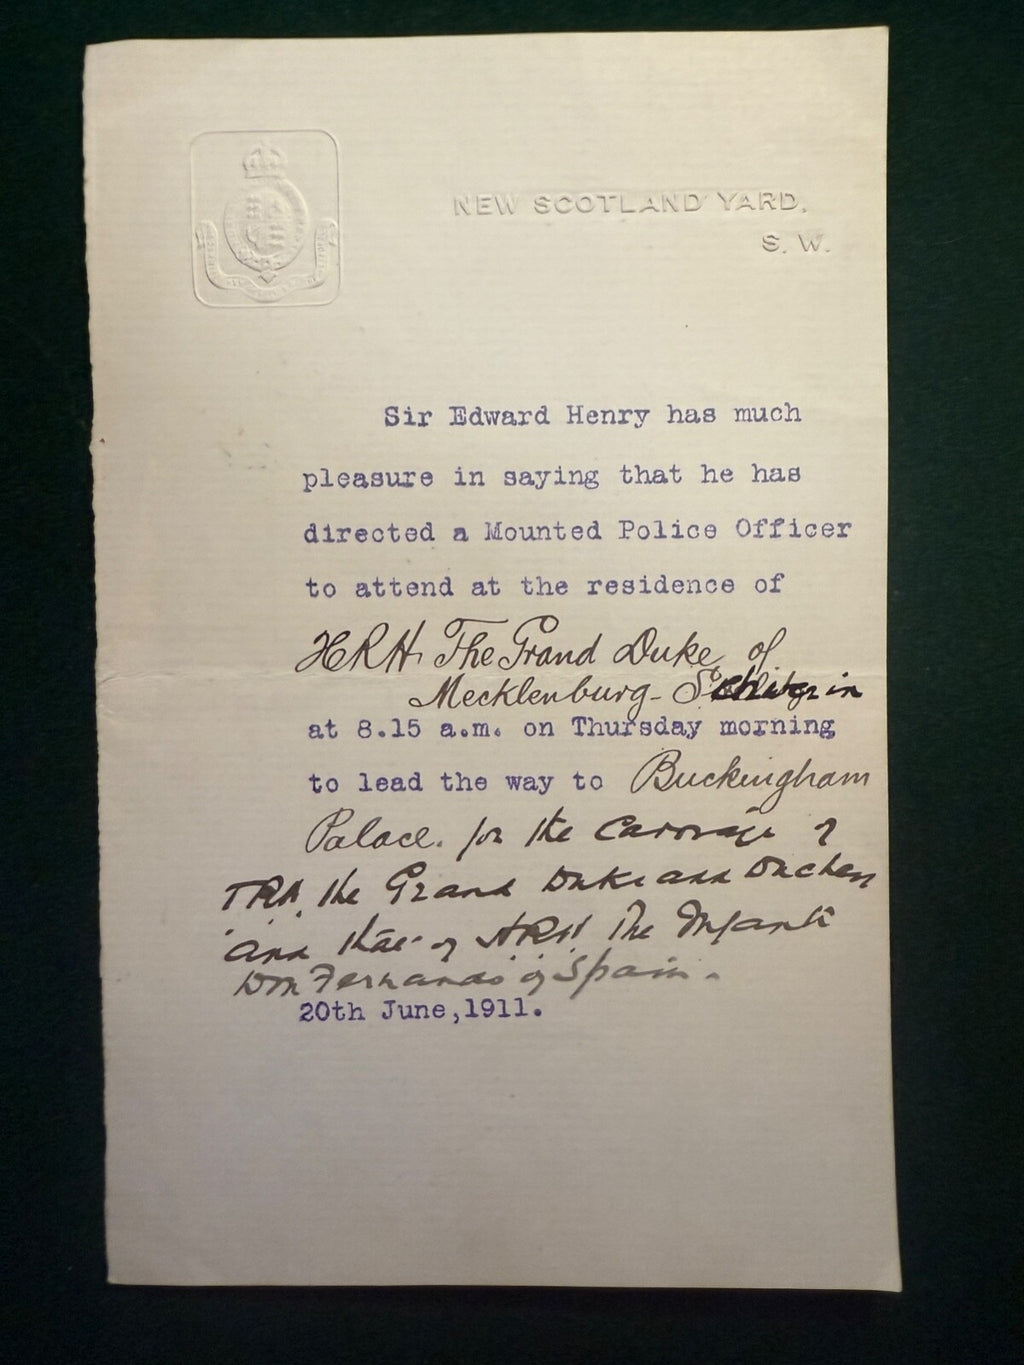 NEW SCOTLAND YARD,
S. W.
Sir Edward Henry has much
pleasure in saying that he has
directed a Mounted Police Officer
to attend at the residence of
HRH. The Grand Duke of
Mecklenburg-
at 8.15 a.m. on Thursday morning
to lead the way to Buckingham
Palace. for the Carriage of
TRH. the Grand Duke and Duchess
and that of HRH The Infante
Don Fernando of Spain.
20th June,1911.